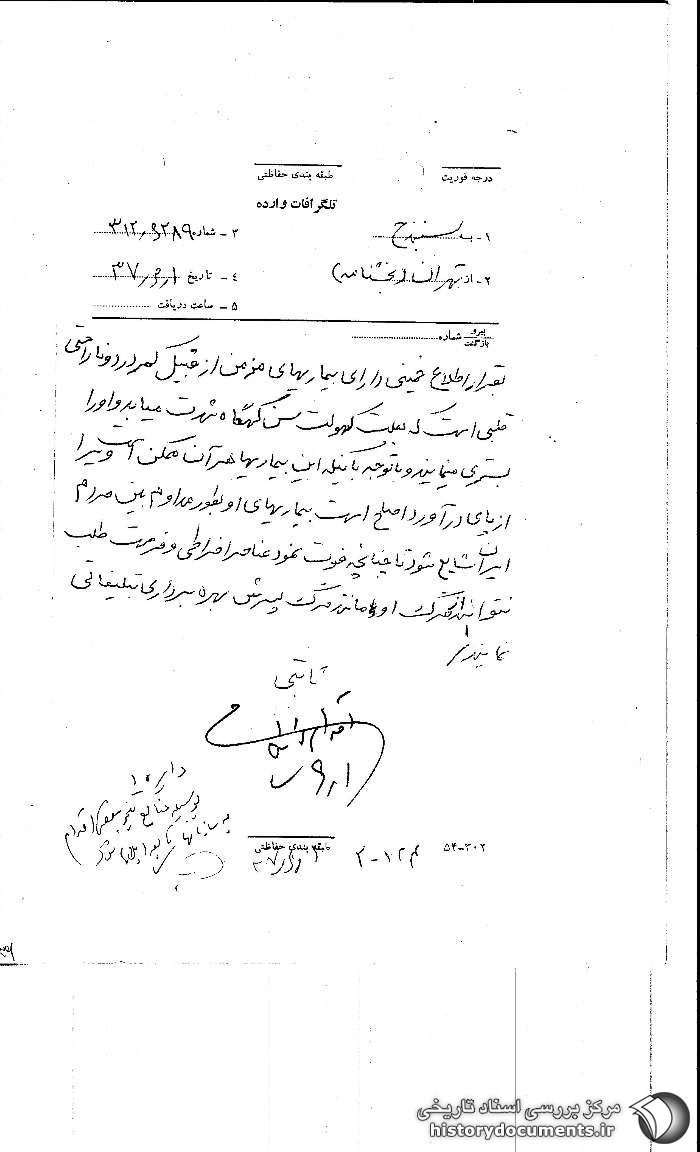 درجه فوریت
طبقه بندی حفاظتی
تلگرافات وارده
۱ - به سنندج
۳ - شماره ۳۱۲/۹۲۸۹
۲ - از تهران (بخشنامه)
۴ - تاریخ ۳۷
۵ - ساعت دریافت
پیرو
بازگشت
شماره
بقرار اطلاع خمینی دارای بیماریهای مزمن از قبیل کمردرد و ناراحتی
قلبی است که بعلت کهولت سن گهگاه شدت مییابد و او را
بستری مینمایند و با توجه باینکه این بیماریها هر آن ممکن است ویرا
از پای درآورد اصلح است بیماریهای او بطور مداوم بین مردم
ایران شایع شود تا چنانچه فوت نمود عناصر افراطی و فرصت طلب
نتوانند از مرگ او مانند مرگ پسرش بهره برداری تبلیغاتی
نمایند
ثابتی
بوسیله منابع
۵۴-۳۰۲
۳-۱۲ م
طبقه بندی حفاظتی
مرکز بررسی اسناد تاریخی
historydocuments.ir